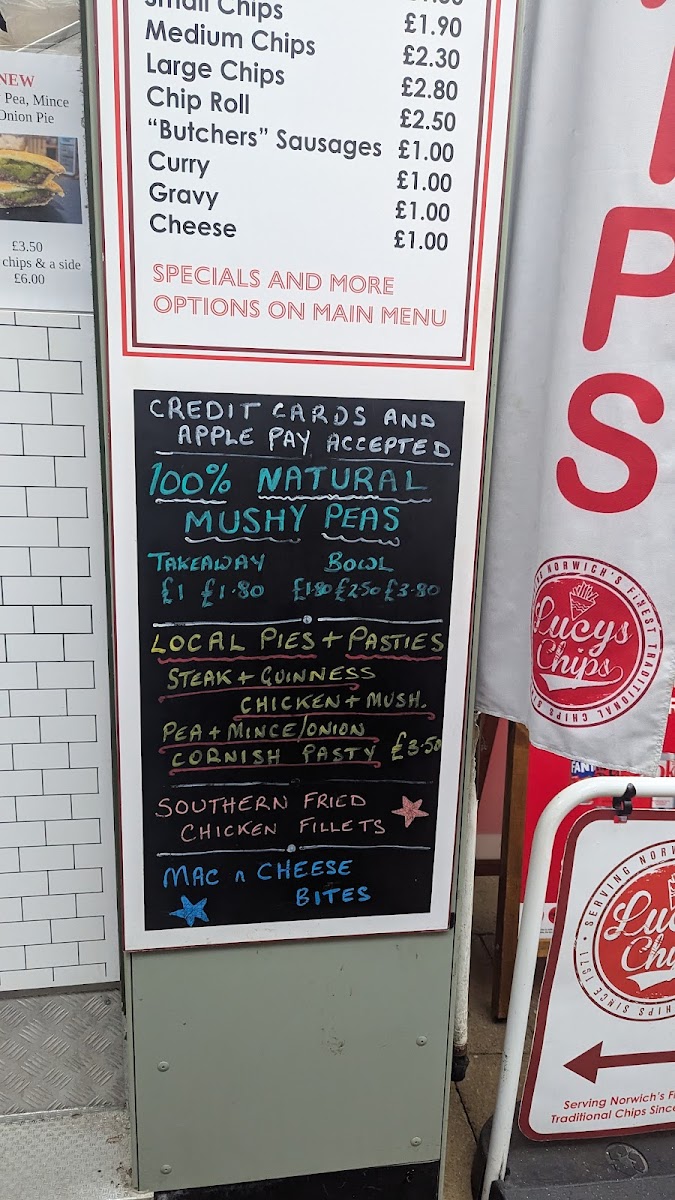 Small Chips £1.90
Medium Chips £2.30
Large Chips £2.80
Chip Roll £2.50
“Butchers” Sausages £1.00
Curry £1.00
Gravy £1.00
Cheese £1.00
SPECIALS AND MORE
OPTIONS ON MAIN MENU
NEW
Pea, Mince
Onion Pie
£3.50
chips & a side
£6.00
CREDIT CARDS AND
APPLE PAY ACCEPTED
100% NATURAL
MUSHY PEAS
TAKEAWAY BOWL
£1 £1.80 £1.80 £2.50 £3.80
LOCAL PIES + PASTIES
STEAK + GUINNESS
CHICKEN + MUSH.
PEA + MINCE/ONION
CORNISH PASTY £3.50
SOUTHERN FRIED
CHICKEN FILLETS
MAC n CHEESE
BITES
P
S
NORWICH'S FINEST TRADITIONAL CHIPS
Lucys
Chips
FANT
SERVING NOR
CHIPS SINCE 1971
Serving Norwich's F
Traditional Chips Since